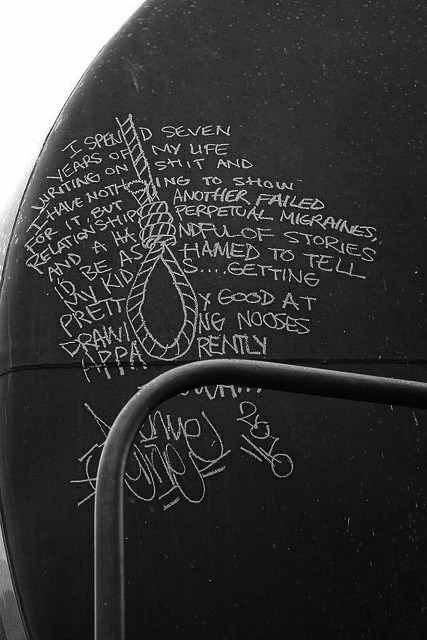 I SPEND SEVEN
YEARS OF MY LIFE
WRITING ON SHIT AND
I HAVE NOTHING TO SHOW
FOR IT, BUT ANOTHER FAILED
RELATIONSHIP, PERPETUAL MIGRAINES,
AND A HANDFUL OF STORIES
I'D BE ASHAMED TO TELL
MY KIDS....GETTING
PRETTY GOOD AT
DRAWING NOOSES
APPARENTLY